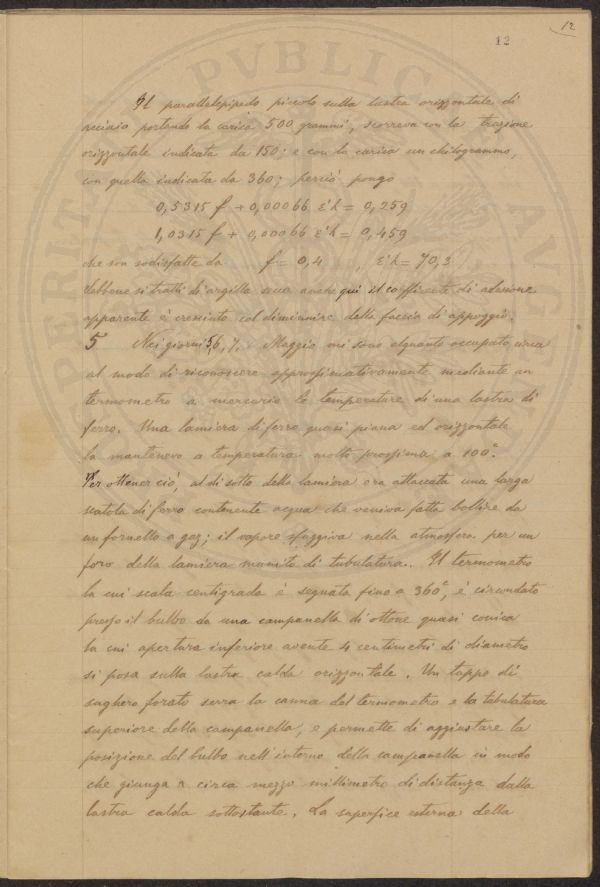 12
12
Il parallelepipedo piccolo sulla lastra orizzontale di
acciaio portando la carica 500 grammi, scorreva con la trazione
orizzontale indicata da 150; e con la carica un chilogrammo,
con quella indicata da 360; perciò pongo
0,5315 f + 0,00066 ε'h = 0,259
1,0315 f + 0,00066 ε'h = 0,459
che son sodisfatte da f = 0,4 , ε'h = 70,3
Sebbene si tratti di argilla secca anche qui il coefficiente di adesione
apparente è cresciuto col diminuire della faccia di appoggio.
5 Nei giorni 5, 6, 7, Maggio mi sono alquanto occupato circa
al modo di riconoscere approssimativamente mediante un
termometro a mercurio le temperature di una lastra di
ferro. Una lamiera di ferro quasi piana ed orizzontale
la manteneva a temperatura molto prossima a 100°.
Per ottener ciò, al di sotto della lamiera era attaccata una larga
scatola di ferro contenente acqua che veniva fatta bollire da
un fornello a gaz; il vapore sfuggiva nella atmosfera per un
foro della lamiera munito di tubulatura. Il termometro
la cui scala centigrada è segnata fino a 360°, è circondato
presso il bulbo da una campanella di ottone quasi conica
la cui apertura inferiore avente 4 centimetri di diametro
si posa sulla lastra calda orizzontale. Un tappo di
sughero forato serra la canna del termometro e la tubulatura
superiore della campanella, e permette di aggiustare la
posizione del bulbo nell'interno della campanella in modo
che giunga a circa mezzo millimetro di distanza dalla
lastra calda sottostante. La superfice esterna della
PVBLICAE